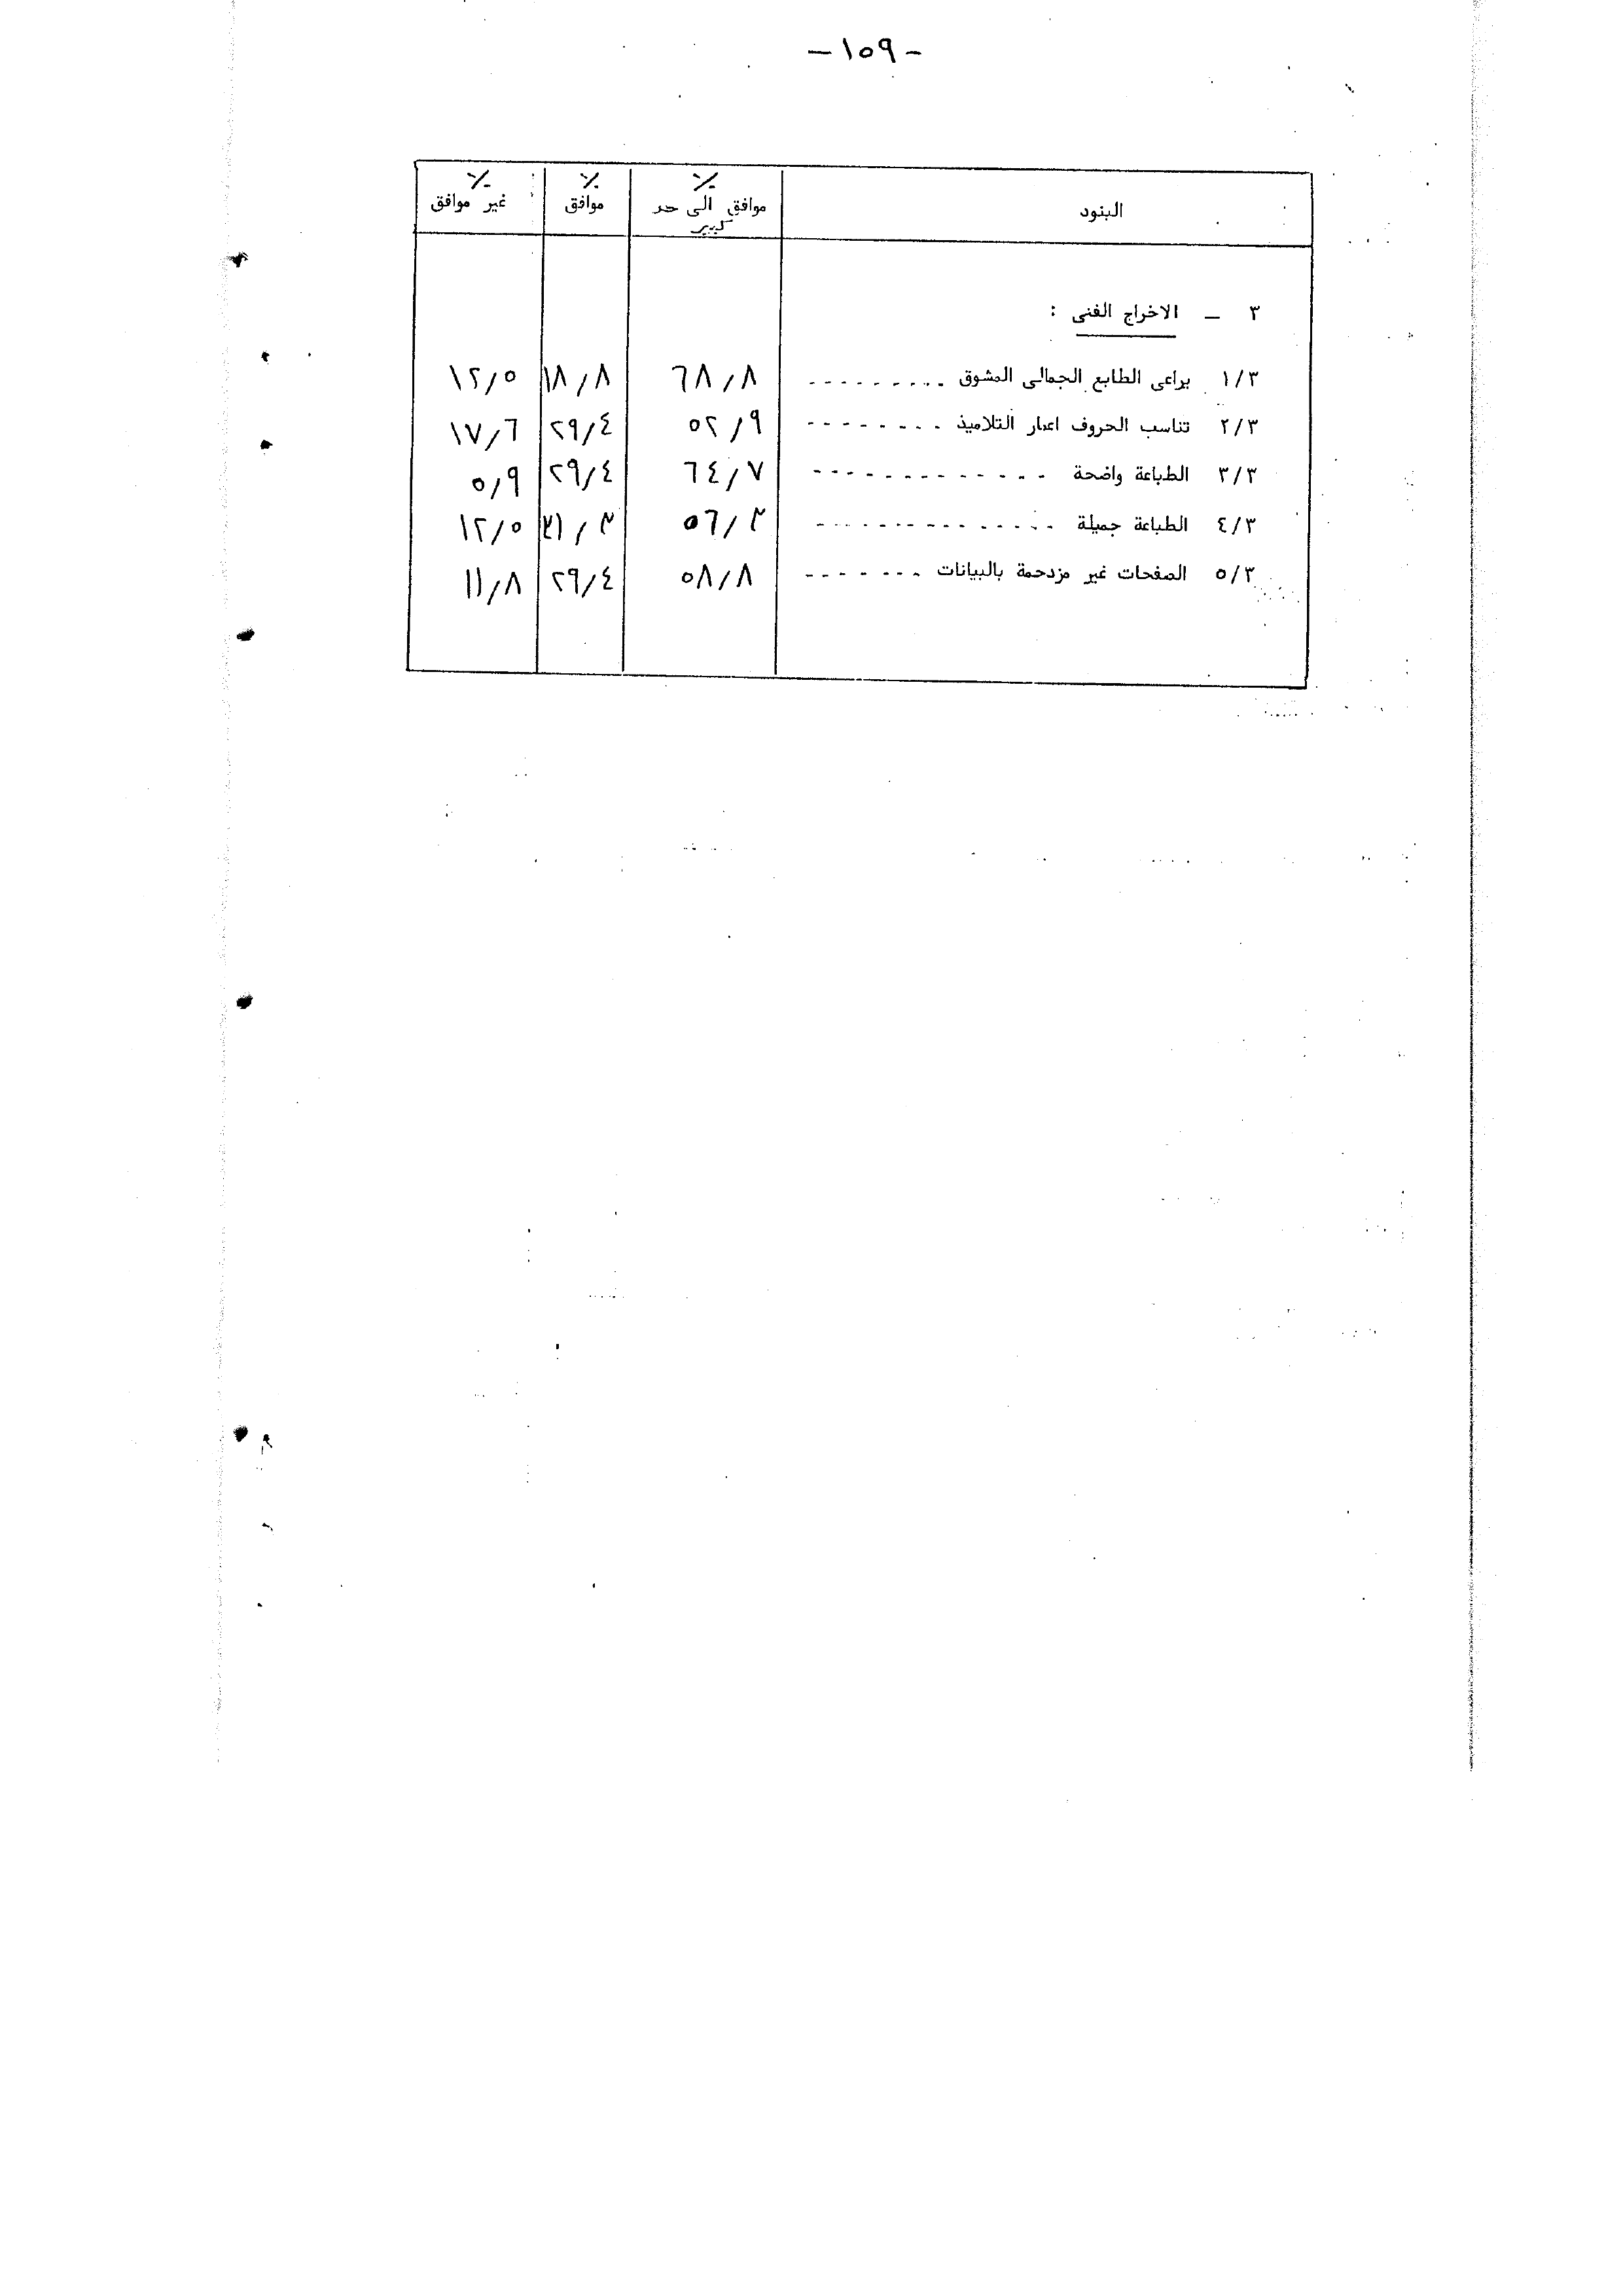 - ١٥٩ -
البنود ٪ موافق الى حد كبير ٪ موافق ٪ غير موافق
٣ - الاخراج الفنى :
١/٣ يراعى الطابع الجمالى المشوق --------- ٦٨,٨ ١٨,٨ ١٢,٥
٢/٣ تناسب الحروف اعمار التلاميذ -------- ٥٢,٩ ٢٩,٤ ١٧,٦
٣/٣ الطباعة واضحة ------------- ٦٤,٧ ٢٩,٤ ٥,٩
٤/٣ الطباعة جميلة -------------- ٥٦,٣ ٣١,٣ ١٢,٥
٥/٣ الصفحات غير مزدحمة بالبيانات ------- ٥٨,٨ ٢٩,٤ ١١,٨